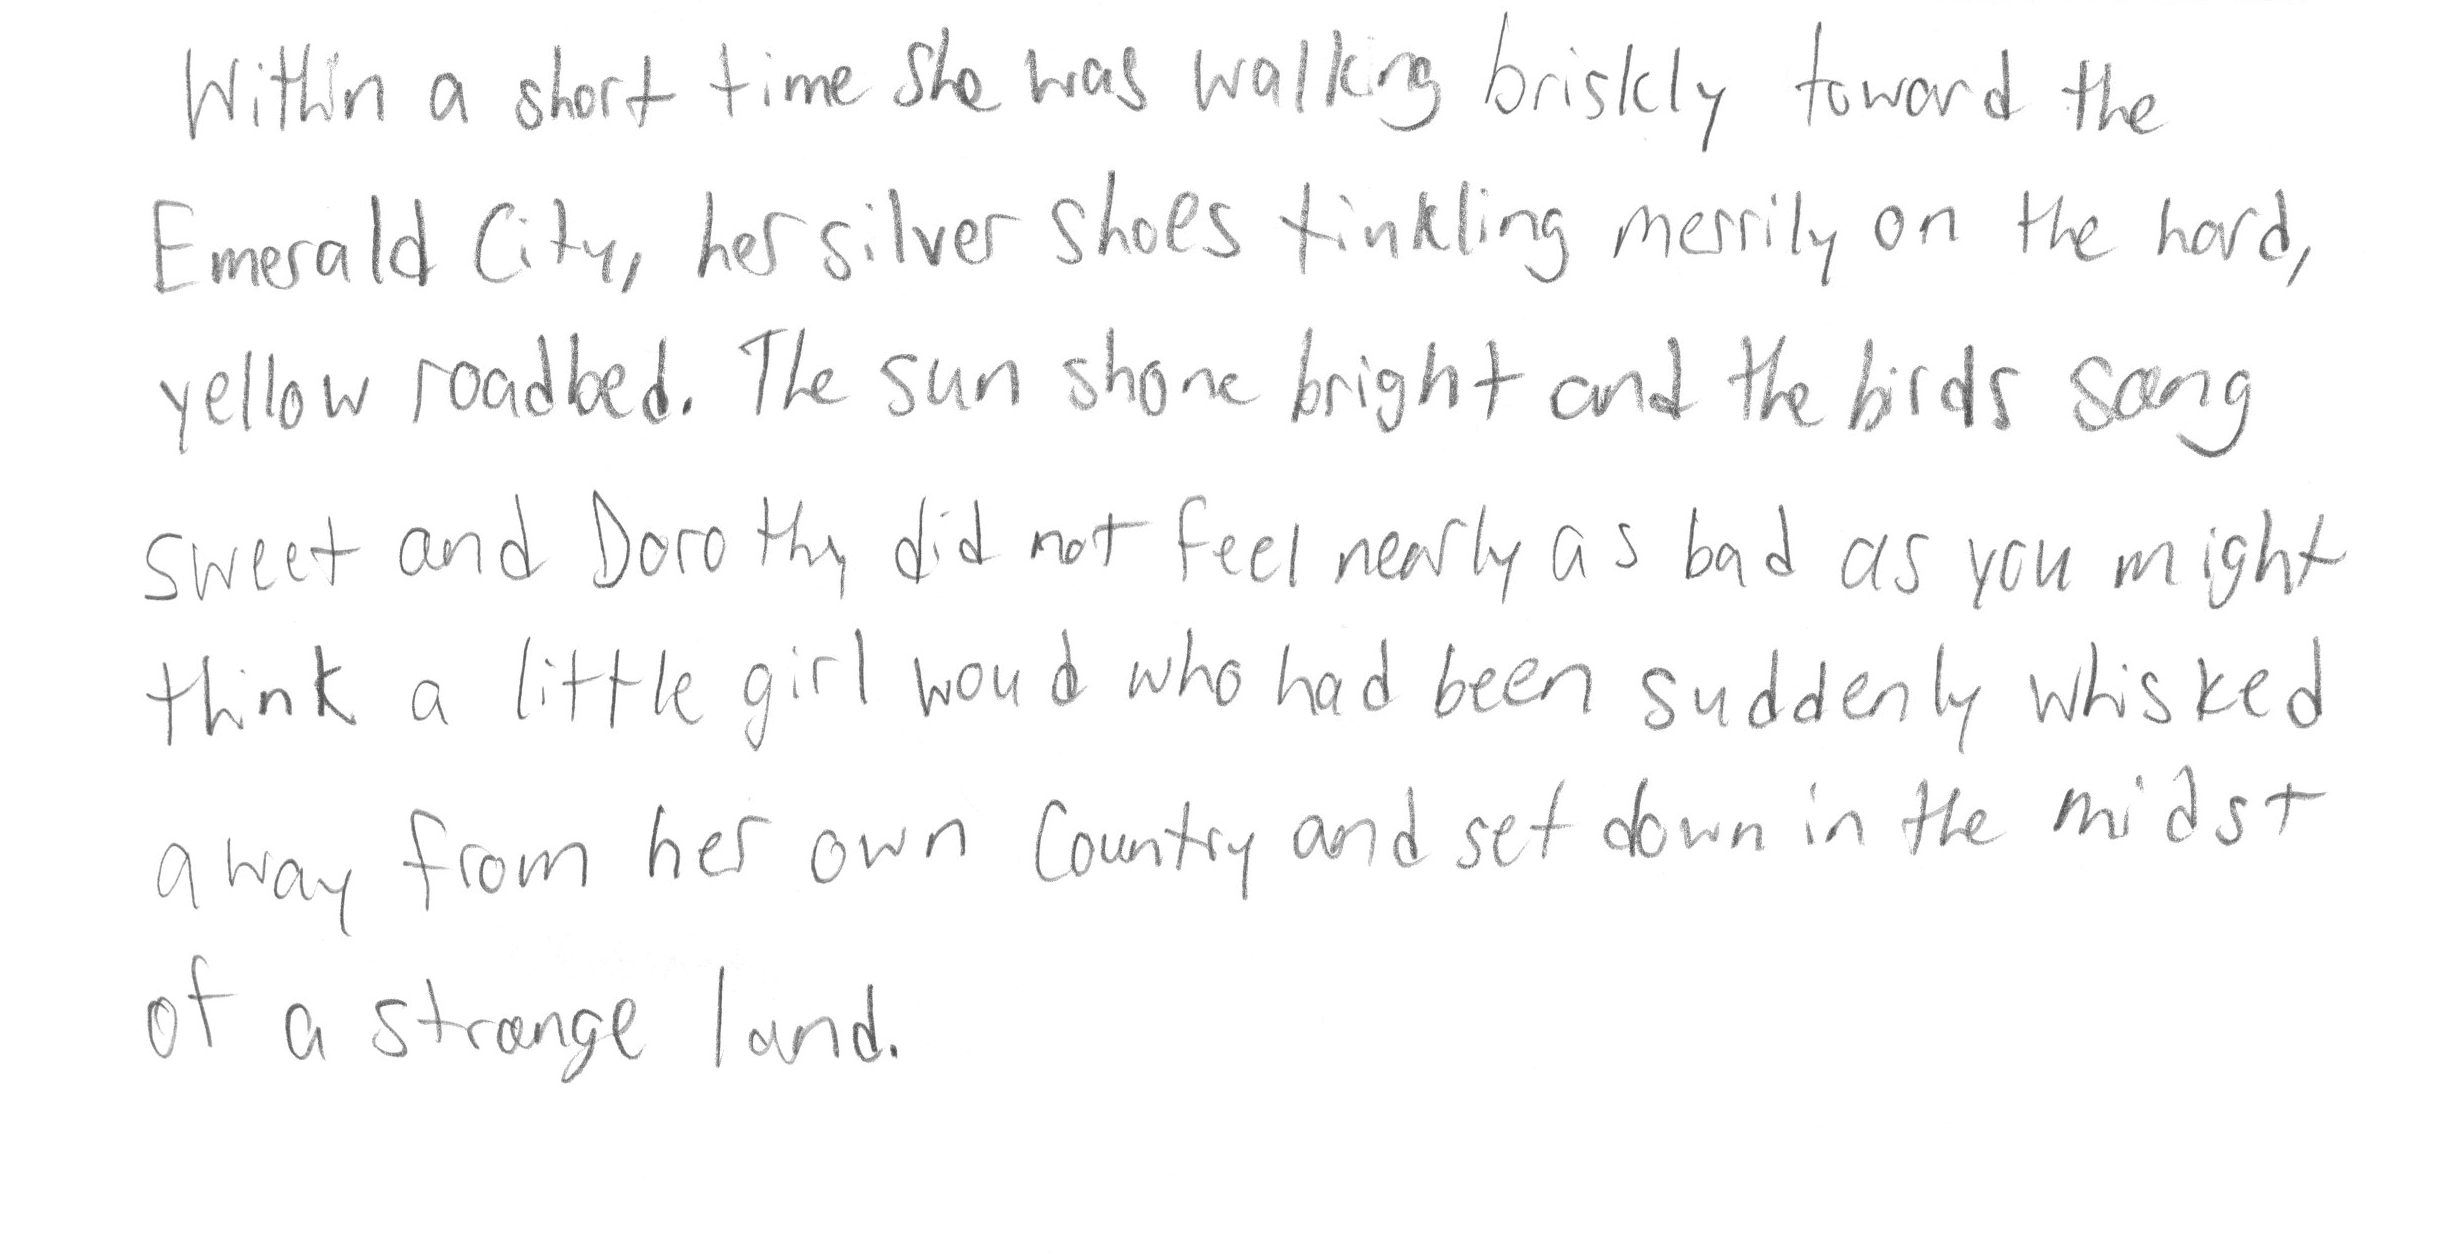 Within a short time she was walking briskly toward the
Emerald City, her silver shoes tinkling merrily on the hard,
yellow roadbed. The sun shone bright and the birds sang
sweet and Dorothy did not feel nearly as bad as you might
think a little girl woud who had been suddenly whisked
away from her own Country and set down in the midst
of a strange land.